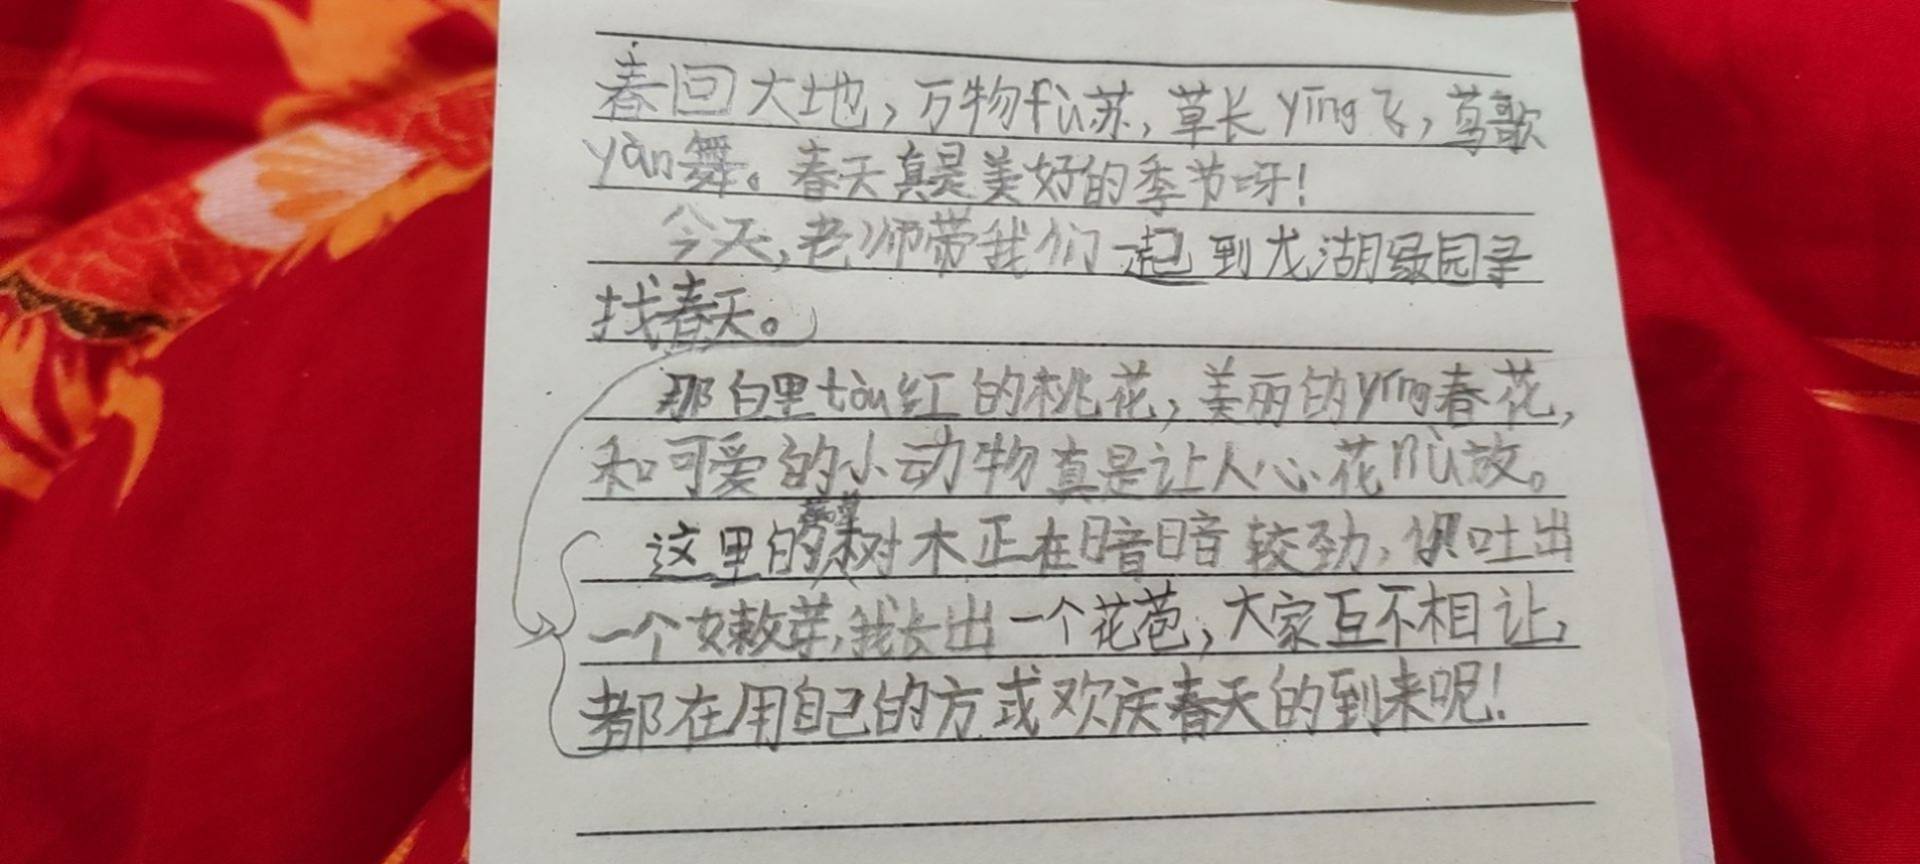 春回大地，万物fù苏，草长yīng飞，莺歌
yàn舞。春天真是美好的季节呀！
今天，老师带我们一起到龙湖绿园寻
找春天。
那白里tòu红的桃花，美丽的yíng春花，
和可爱的小动物真是让人心花nù放。
这里的树木正在暗暗较劲，你吐出
一个嫩芽，我长出一个花苞，大家互不相让，
都在用自己的方式欢庆春天的到来呢！